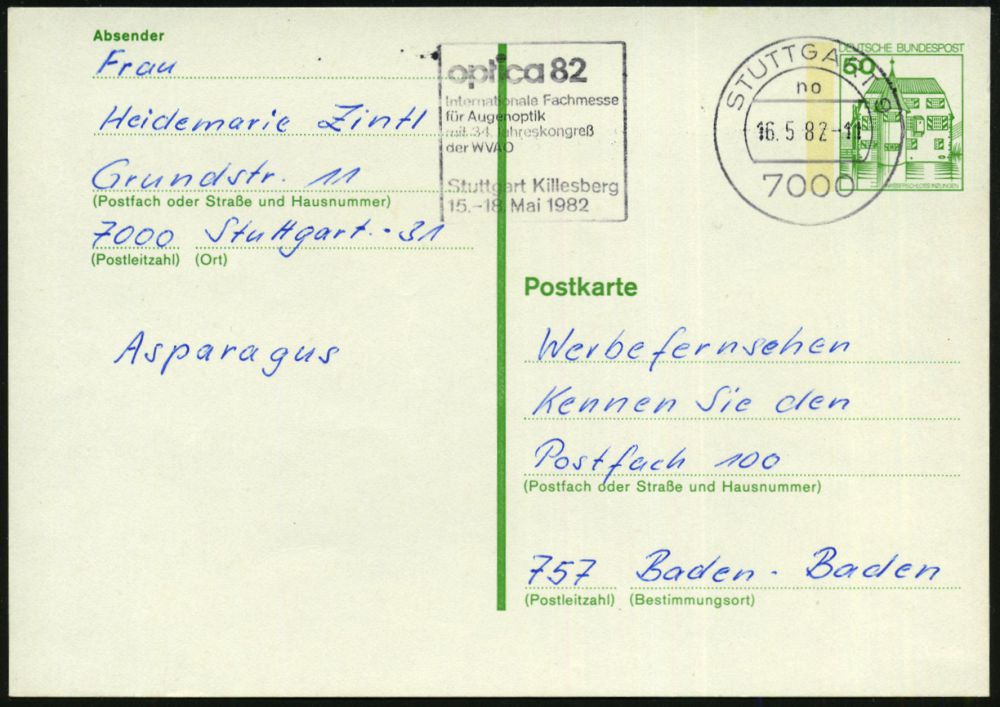 Absender
Frau
Heidemarie Zintl
Grundstr. 11
(Postfach oder Straße und Hausnummer)
7000 Stuttgart - 31
(Postleitzahl) (Ort)
Asparagus
optica 82
Internationale Fachmesse
für Augenoptik
mit 34. Jahreskongreß
der WVAO
Stuttgart Killesberg
15.-18. Mai 1982
STUTTGART
no
16.5.82-11
7000
DEUTSCHE BUNDESPOST
50
WASSERSCHLOSS INZLINGEN
Postkarte
Werbefernsehen
Kennen Sie den
Postfach 100
(Postfach oder Straße und Hausnummer)
757 Baden-Baden
(Postleitzahl) (Bestimmungsort)